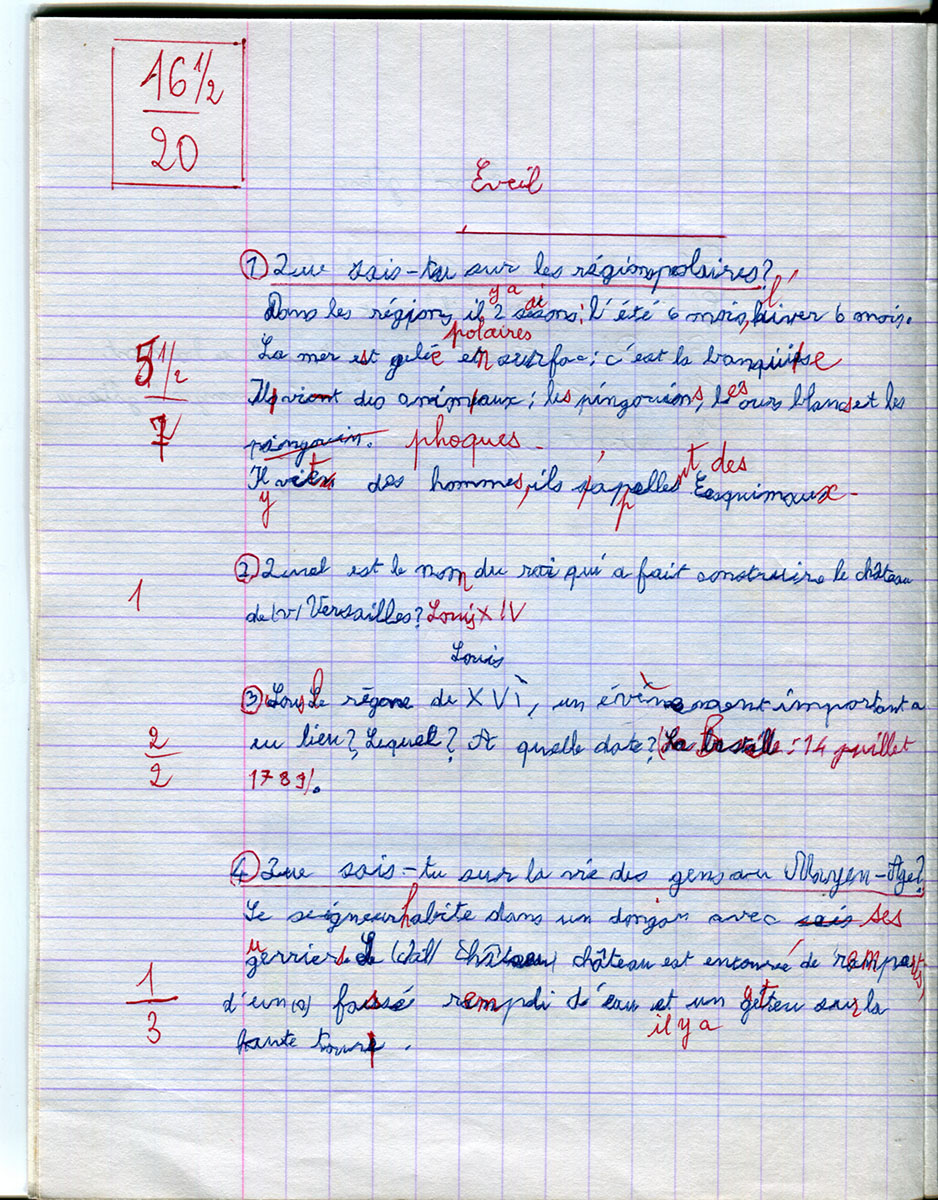 16 1/2
20
Eveil
① Que sais-tu sur les régions polaires?
y a ai l'
Dans les régions, il 2 saisons; l'été 6 mois, hiver 6 mois.
polaires
La mer est gelée en surface; c'est la banquise
5 1/2
7
Il vient des animaux; les pingouins, les ours blancs et les
pingouin. phoques.
t nt des
Il vient des hommes, ils s'appellent Esquimaux.
y p
② Quel est le nom du roi qui a fait construire le château
1
de (v) Versailles? Louis XIV
Louis
③ Sous le règne de XVI, un évènement important a
2
2
eu lieu? Lequel? A quelle date? (La Bastille: 14 juillet
1789).
④ Que sais-tu sur la vie des gens au Moyen-Age?
Le seigneur habite dans un donjon avec sais ses
u
gerriers Le château est entouré de remparts,
1
3
d'un fossé rempli d'eau et un getteu sur la
il y a
haute tour.